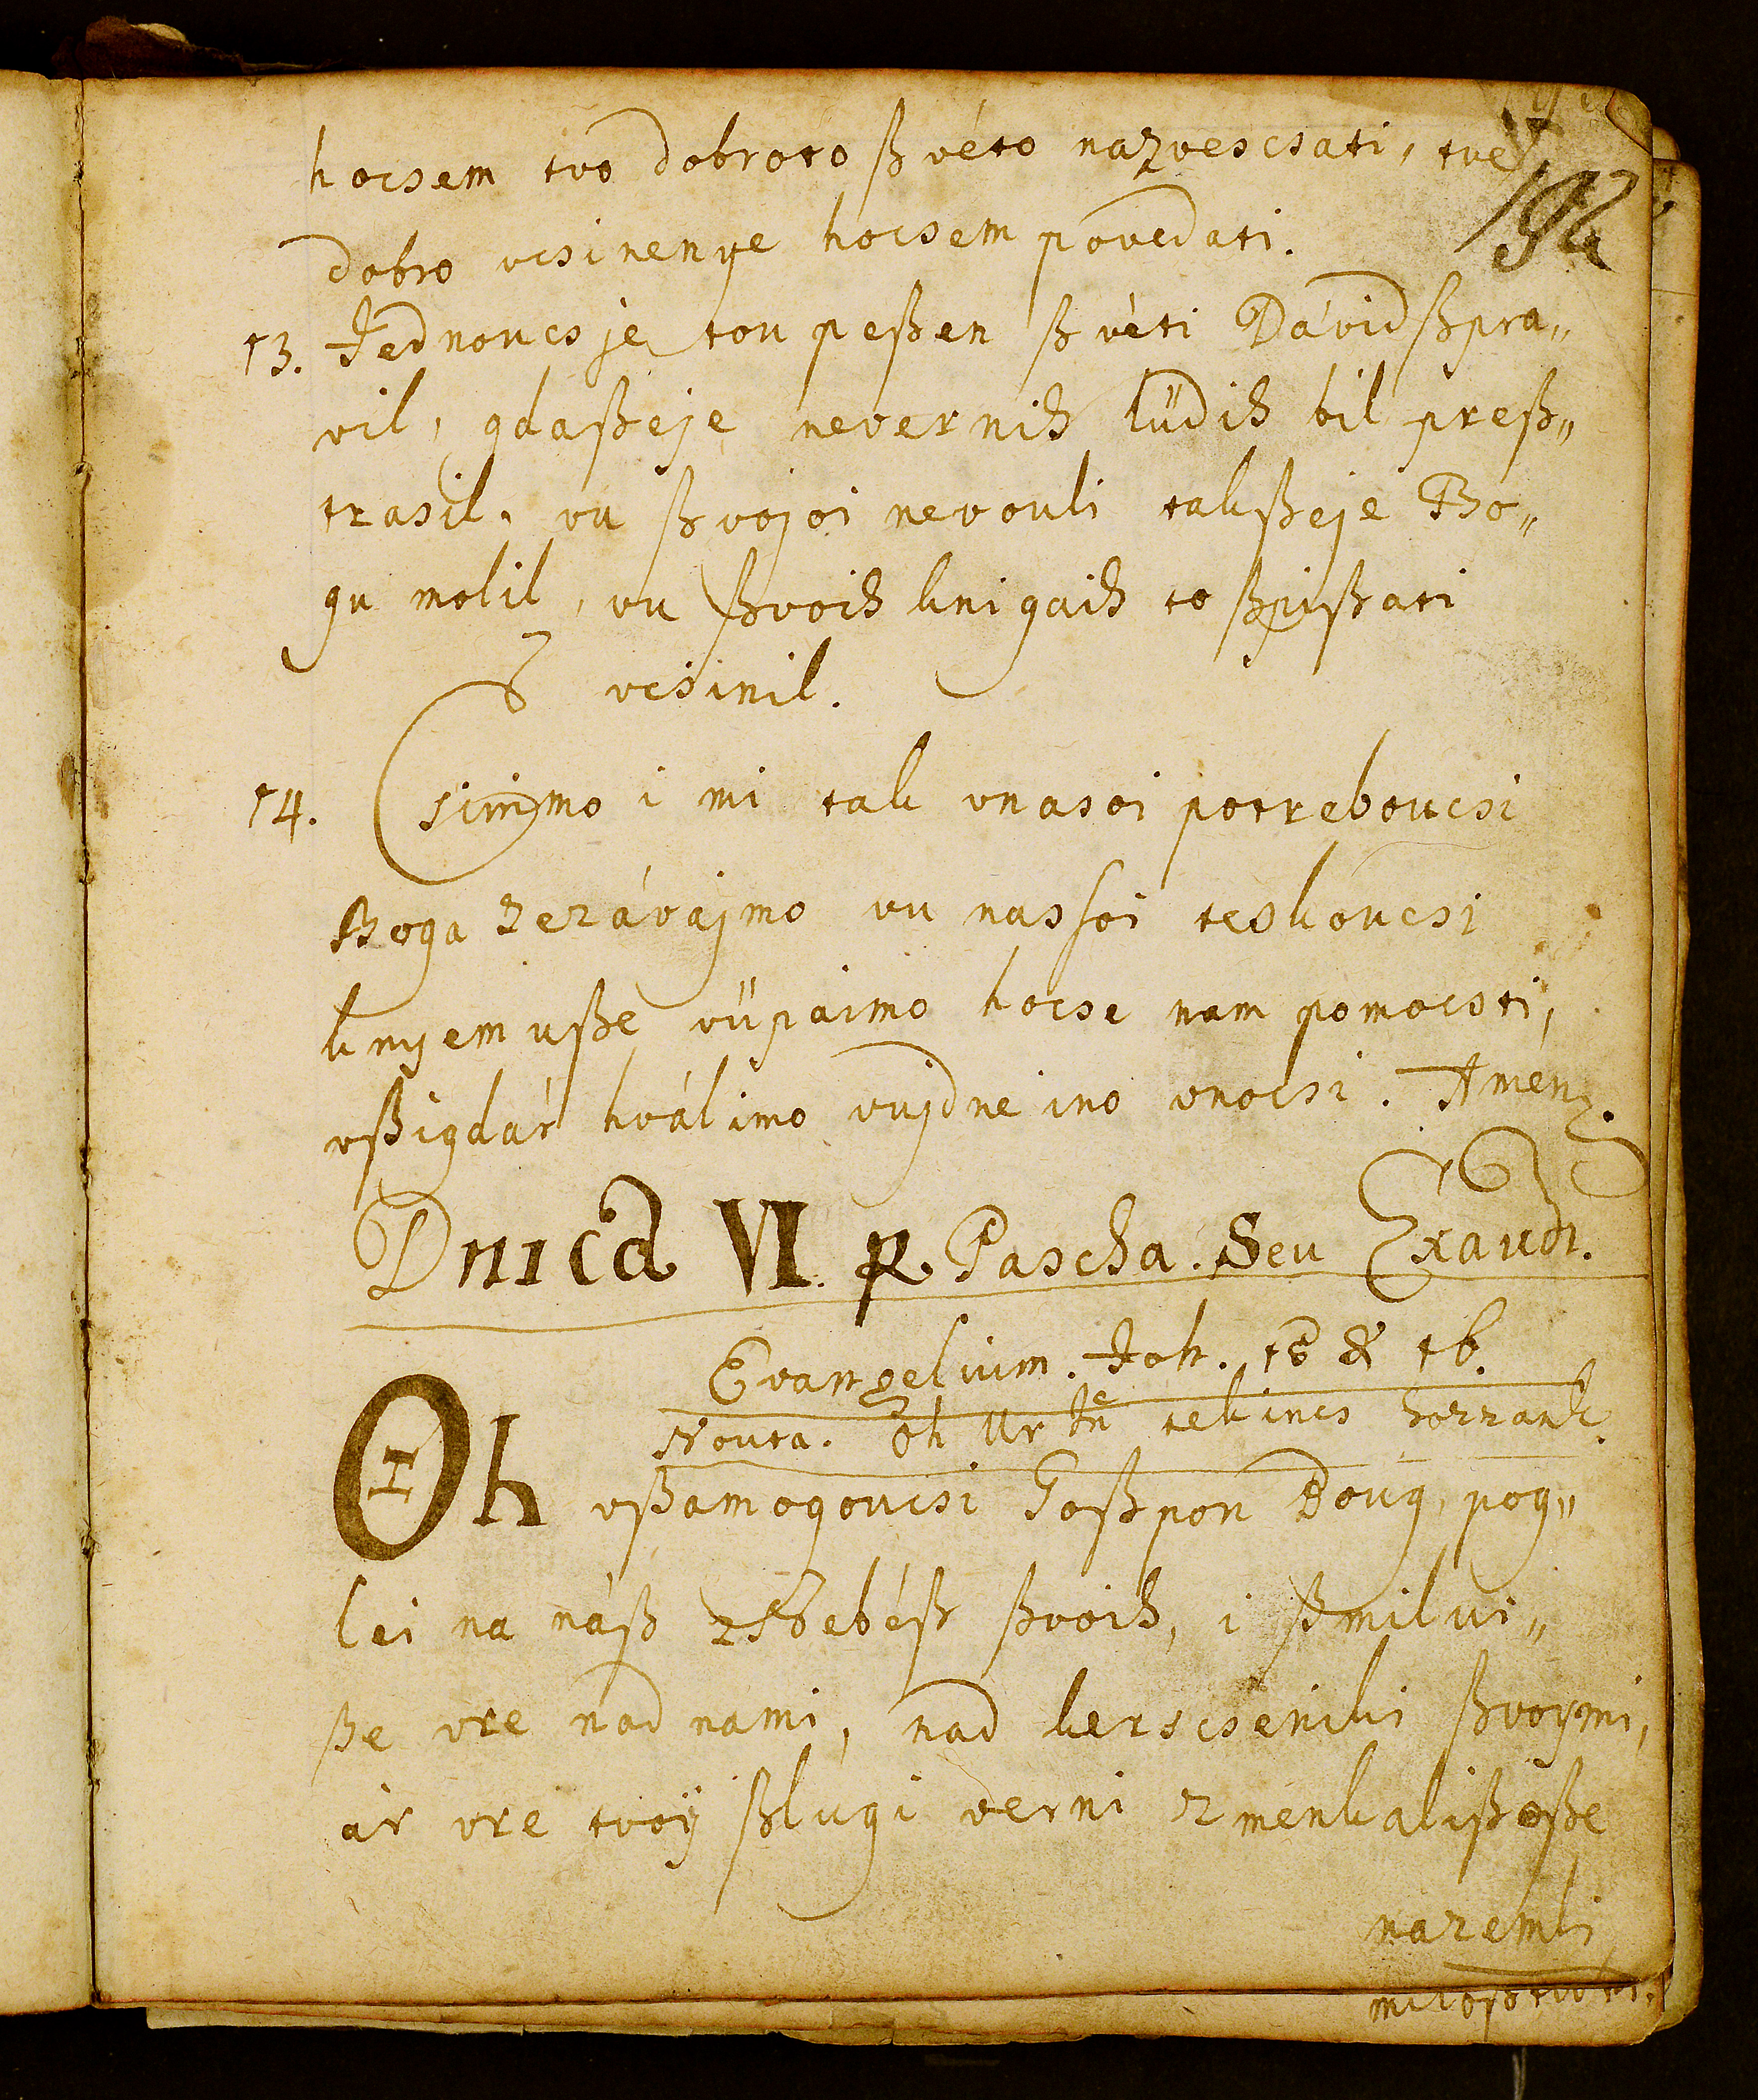 hocsem tvo dobroto ßvéto nazvescsati, tve
192
dobro vcsinenye hocsem povedati.
13. Jednoucs je tou peßen ßvéti Dávid ßpra„
vil, gdaßeje nevernih lüdih bil preß„
trasil, vu ßvojoi nevouli takßeje Bo„
gu molil, vu ßvoih knigaih to ßpißati
vcsinil.
14. Csinmo i mi tak vnasoi potreboucsi
Boga zezávajmo vu nassoi teskoucsi
knyemuße vüpaimo hocse nam pomocsti,
vßigdár hválimo vujdne ino vnocsi. Amen.
Dnica VI. p. Pascha. Seu Exaudi.
Evangelium. Joh. 15 & 16.
Nouta. Oh Ur Jŕn tekincs hozzank.
Oh vßamogoucsi Goßpon Boug, pog„
lei na náß z Nebéß ßvoih, i ßmilui„
ße vre nad nami, nad kerscseniki ßvoymi,
ár vre tvoÿ ßlugi verni zmenkalißoße
nazemli
miloßtivni.